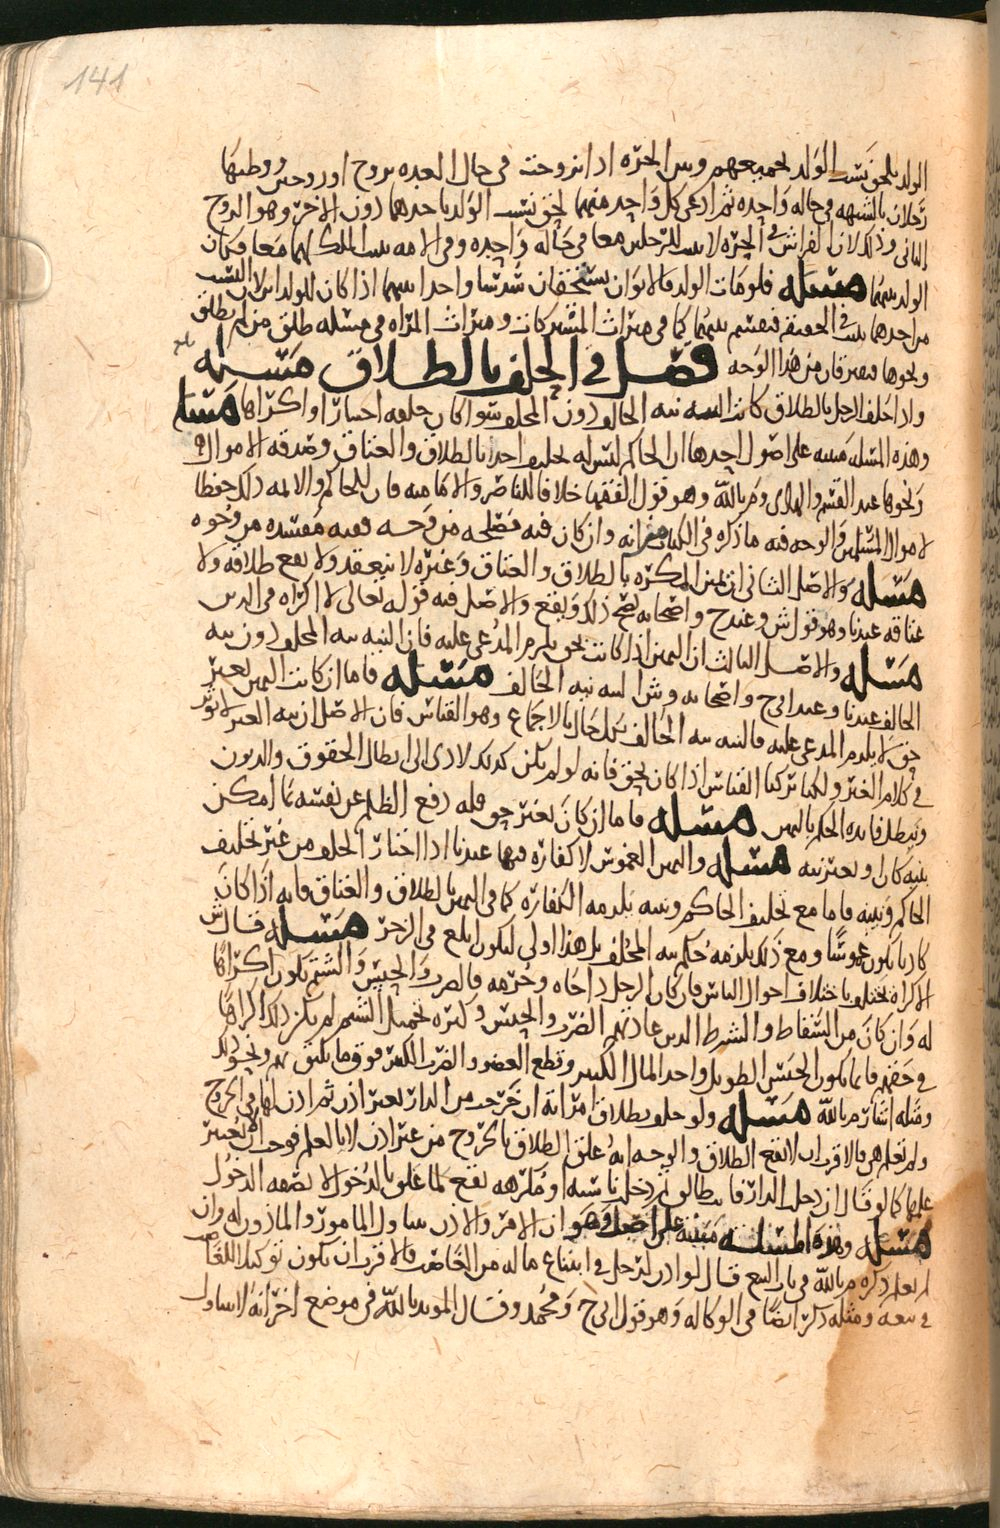 141
الولد يلحق نسب الولد بجميعهم وبين الحره اذا تزوجت في حال العده بزوج اوزوجين ووطيها
رجلان بالشبهه في حاله واحده ثم ادعى كل واحد منهما لحق نسب الولد باحدهما دون الاخر وهو الزوج
الثاني وذلك لان الفراش في الحره لا يثبت للرجلين معا في حاله واحده وفي الامه يثبت الملك لهما معا فكان
الولد بينهما مسئله فلو مات الولد فالابوان يستحقان سدسا واحدا بينهما اذا كان للولد ابن لان النسب
من احدهما يثبت في الحقيقه فيقسم بينهما كما في ميراث المشتركات وميراث المراه في مسئله طلق من لم يطلق
ونحوها فيفترقان من هذا الوجه فصل في الحلف بالطلاق مسئله
واذا حلف الرجل بالطلاق كانت النيه نيه الحالف دون المحلف سوا كان حلفه اختيارا او اكراها مسئله
وهذه المسئله مبنيه على اصول احدها ان الحاكم ليس له تحليف احد بالطلاق والعتاق وصدقه الاموال
ونحوها عند القسم والهادي وم بالله وهو قول الفقها خلافا للناصر والاماميه فان للحاكم والايمه ذلك حفظا
لاموال المسلمين والوجه فيه ما ذكره في الكتاب من انه وان كان فيه مصلحه من وجه ففيه مفسده من وجوه
مسئله والاصل الثاني ان يمين المكره بالطلاق والعتاق وغيره لا تنعقد ولا يقع طلاقه ولا
عتاقه عندنا وهو قول ش وعند ح واصحابه يصح ذلك ويقع والاصل فيه قوله تعالى لا اكراه في الدين
مسئله والاصل الثالث ان اليمين اذا كانت بحق يلزم المدعى عليه فان النيه نيه المحلف دون نيه
الحالف عندنا وعند ابي ح واصحابه وش ان النيه نيه الحالف مسئله فاما ان كانت اليمين بغير
حق لا يلزم المدعى عليه فالنيه نيه الحالف بكل حال بالاجماع وهو القياس فان الاصل ان نيه الغير لا توثر
في كلام الغير ولكنا تركنا القياس اذا كان بحق فانه لو لم يكن كذلك لادى الى ابطال الحقوق والديون
ويبطل فايده الحكم باليمين مسئله فاما ان كان بغير حق فله رفع الظلم عن نفسه بما امكن
بنيه كان او بغير نيه مسئله واليمين الغموس لا كفاره فيها عندنا اذا اختار الحلف من غير تحليف
الحاكم ونيته فاما مع تحليف الحاكم ونيته يلزمه الكفاره كما في اليمين بالطلاق والعتاق فانه اذا كان
كاذبا يكون غموسا ومع ذلك يلزمه حكم نيه المحلف بل هذا اولى ليكون ابلغ في الزجر مسئله قال ش
الاكراه يختلف باختلاف احوال الناس فان كان الرجل ذا جاه وحرمه فالضرب والحبس والشتم يكون اكراها
له وان كان من السقاط والشرط الذين عادتهم الضرب والحبس وكثره تحميل الشتم لم يكن ذلك اكراها
في حقهم فانما يكون الحبس الطويل واخذ المال الكثير وقطع العضو والضرب الكثير فوق ما يليق بهم ونحو ذلك
ومثله اشار م بالله مسئله ولو حلف بطلاق امراته ان خرجت من الدار بغير اذن ثم اذن لها في الخروج
ولم تعلم هي فالاقرب ان لا يقع الطلاق والوجه انه علق الطلاق بالخروج من غير اذن لا بالعلم فوجب ان يعتبر
عليها كما لو قال ان دخل الدار فانت طالق ثم دخل ناسيا او مكرها يقع لما علق بالدخول لا بصفه الدخول
مسئله وهذه المسئله مبنيه على اصل وهو ان الامر والاذن يتناول المامور والماذون له وان
لم يعلم ذكره م بالله في باب البيع قال لو اذن لرجل في ابتياع ماله من الغاصب فالاقرب ان يكون توكيلا للغاصب
في بيعه ومثله ذكر ايضا في الوكاله وهو قول ابي ح ومحمد وقال المويد بالله في موضع اخر انه لا يتناول